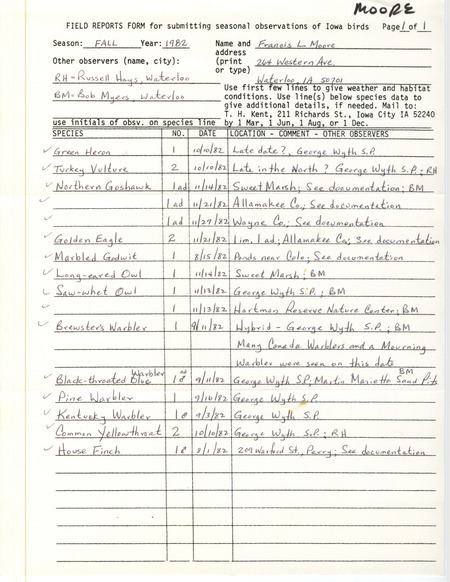 MOORE
FIELD REPORTS FORM for submitting seasonal observations of Iowa birds Page 1 of 1
Season: FALL Year: 1982 Name and Francis L. Moore
address
Other observers (name, city): (print 264 Western Ave.
or type)
RH-Russell Hays, Waterloo Waterloo, IA 50701
BM-Bob Myers, Waterloo Use first few lines to give weather and habitat
conditions. Use line(s) below species data to
give additional details, if needed. Mail to:
T. H. Kent, 211 Richards St., Iowa City IA 52240
use initials of obsv. on species line by 1 Mar, 1 Jun, 1 Aug, or 1 Dec.
SPECIES NO. DATE LOCATION - COMMENT - OTHER OBSERVERS
✓ Green Heron 1 10/10/82 Late date?, George Wyth S.P.
✓ Turkey Vulture 2 10/10/82 Late in the North? George Wyth S.P.; RH
✓ Northern Goshawk 1 ad 11/14/82 Sweet Marsh; See documentation; BM
✓ 1 ad 11/21/82 Allamakee Co.; See documentation
✓ 1 ad 11/27/82 Wayne Co.; See documentation
✓ Golden Eagle 2 11/21/82 1 im. 1 ad; Allamakee Co; See documentation
✓ Marbled Godwit 1 8/15/82 Ponds near Colo; See documentation
✓ Long-eared Owl 1 11/14/82 Sweet Marsh; BM
✓ Saw-whet Owl 1 11/13/82 George Wyth S.P.; BM
✓ 1 11/13/82 Hartman Reserve Nature Center; BM
✓ Brewster's Warbler 1 9/11/82 Hybrid - George Wyth S.P.; BM
Many Canada Warblers and a Mourning
Warbler were seen on this date
✓ Black-throated Blue Warbler 1♂ 9/11/82 George Wyth S.P, Martin Marietta Sand Pits BM
✓ Pine Warbler 1 9/10/82 George Wyth S.P.
✓ Kentucky Warbler 1♂ 9/3/82 George Wyth S.P.
✓ Common Yellowthroat 2 10/10/82 George Wyth S.P; RH
✓ House Finch 1♂ 8/1/82 209 Warford St., Perry; See documentation